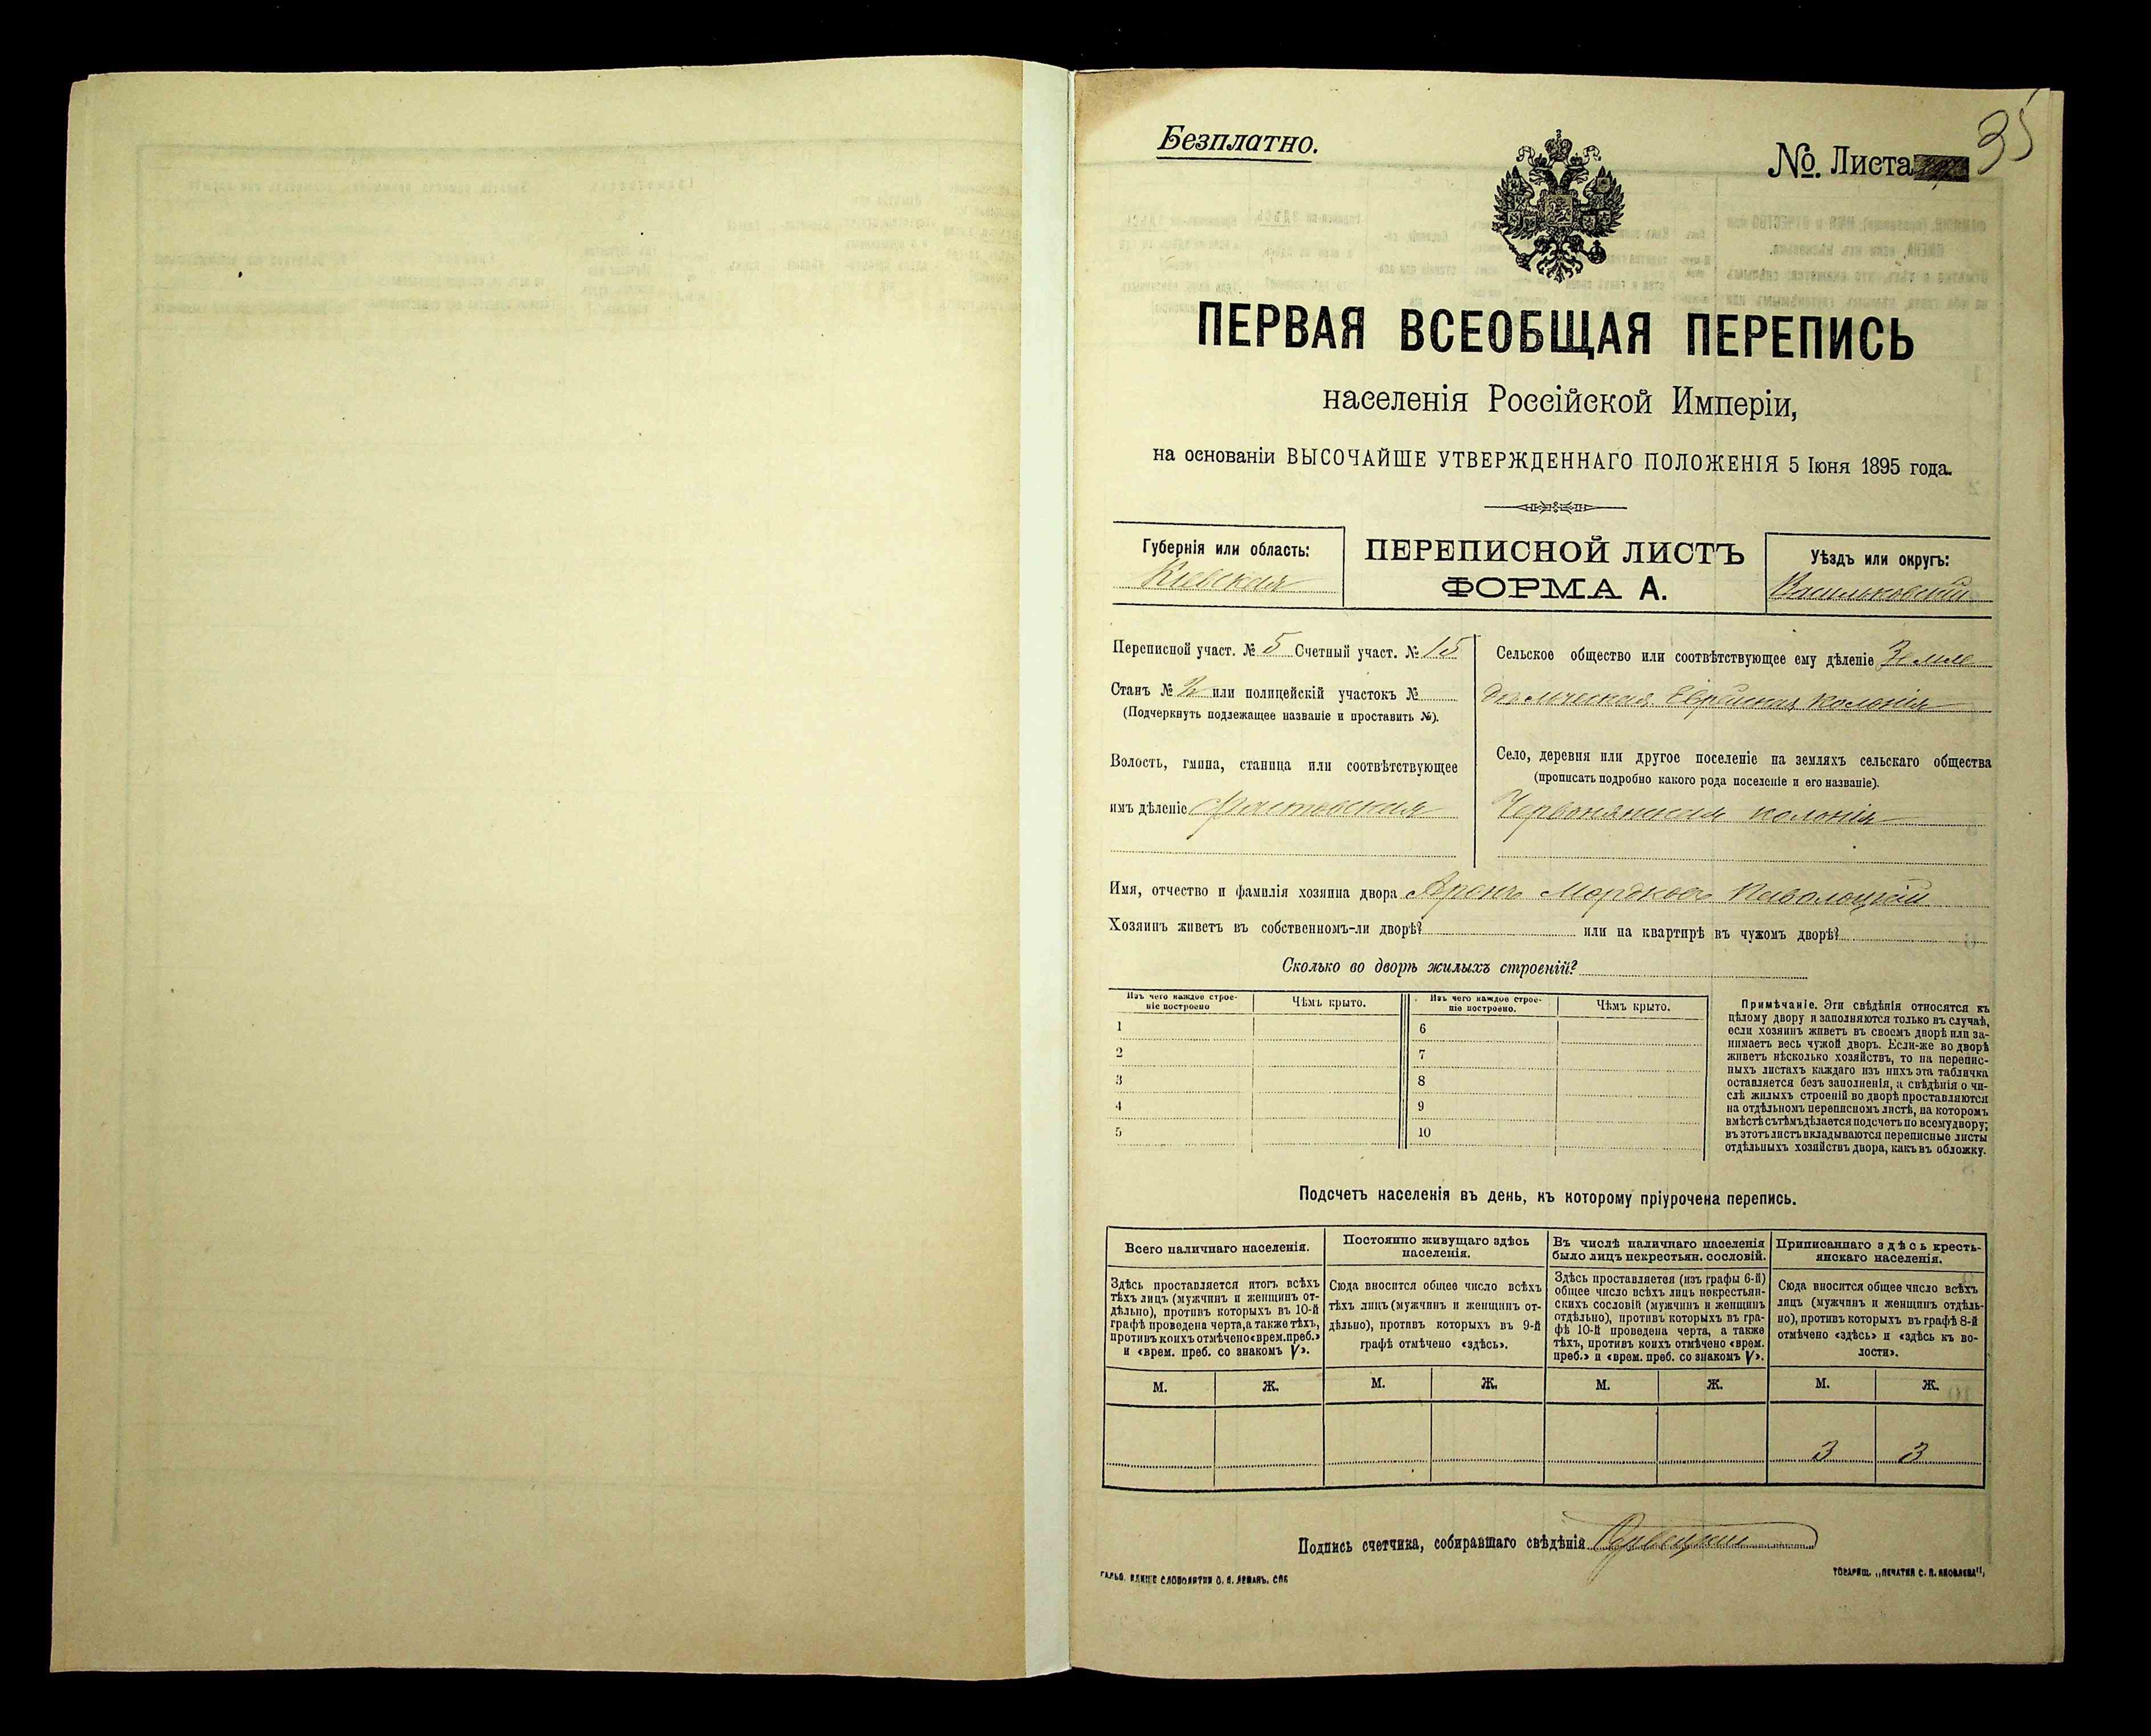 35
Безплатно.
№. Листа
ПЕРВАЯ ВСЕОБЩАЯ ПЕРЕПИСЬ
населенія Россійской Имперіи,
на основаніи ВЫСОЧАЙШЕ УТВЕРЖДЕННАГО ПОЛОЖЕНІЯ 5 Іюня 1895 года.
Губернія или область:
Кіевская
ПЕРЕПИСНОЙ ЛИСТЪ
ФОРМА А.
Уѣздъ или округъ:
Васильковскій
Переписной участ. № 5 Счетный участ. № 15
Станъ № или полицейскій участокъ №
(Подчеркнуть подлежащее названіе и проставить №).
Волость, гмина, станица или соотвѣтствующее
имъ дѣленіе Фастовская
Сельское общество или соотвѣтствующее ему дѣленіе Земле
дѣльческая Еврейская колонія
Село, деревня или другое поселеніе на земляхъ сельскаго общества
(прописать подробно какого рода поселеніе и его названіе).
Червонянская колонія
Имя, отчество и фамилія хозяина двора Аронъ Мордковъ Паволоцкій
Хозяинъ живетъ въ собственномъ-ли дворѣ? или на квартирѣ въ чужомъ дворѣ?
Сколько во дворѣ жилыхъ строеній?
Изъ чего каждое строе-
ніе построено
Чѣмъ крыто.
Изъ чего каждое строе-
ніе построено.
Чѣмъ крыто.
1
2
3
4
5
6
7
8
9
10
Примѣчаніе. Эти свѣдѣнія относятся къ
цѣлому двору и заполняются только въ случаѣ,
если хозяинъ живетъ въ своемъ дворѣ или за-
нимаетъ весь чужой дворъ. Если-же во дворѣ
живетъ нѣсколько хозяйствъ, то на перепис-
ныхъ листахъ каждаго изъ нихъ эта табличка
оставляется безъ заполненія, а свѣдѣнія о чи-
слѣ жилыхъ строеній во дворѣ проставляются
на отдѣльномъ переписномъ листѣ, на которомъ
вмѣстѣ съ тѣмъ дѣлается подсчетъ по всему двору;
въ этотъ листъ вкладываются переписные листы
отдѣльныхъ хозяйствъ двора, какъ въ обложку.
Подсчетъ населенія въ день, къ которому пріурочена перепись.
Всего наличнаго населенія.
Здѣсь проставляется итогъ всѣхъ
тѣхъ лицъ (мужчинъ и женщинъ от-
дѣльно), противъ которыхъ въ 10-й
графѣ проведена черта, а также тѣхъ,
противъ коихъ отмѣчено «врем. преб.»
и «врем. преб. со знакомъ V».
М. Ж.
Постоянно живущаго здѣсь
населенія.
Сюда вносится общее число всѣхъ
тѣхъ лицъ (мужчинъ и женщинъ от-
дѣльно), противъ которыхъ въ 9-й
графѣ отмѣчено «здѣсь».
М. Ж.
Въ числѣ наличнаго населенія
было лицъ некрестьян. сословій.
Здѣсь проставляется (изъ графы 6-й)
общее число всѣхъ лицъ некрестьян-
скихъ сословій (мужчинъ и женщинъ
отдѣльно), противъ которыхъ въ гра-
фѣ 10-й проведена черта, а также
тѣхъ, противъ коихъ отмѣчено «врем.
преб.» и «врем. преб. со знакомъ V».
М. Ж.
Приписаннаго здѣсь кресть-
янскаго населенія.
Сюда вносится общее число всѣхъ
лицъ (мужчинъ и женщинъ отдѣль-
но), противъ которыхъ въ графѣ 8-й
отмѣчено «здѣсь» и «здѣсь къ во-
лости».
М. Ж.
3 3
Подпись счетчика, собиравшаго свѣдѣнія
СЛОВОЛИТНИ О. И. ЛЕМАНЪ, СПБ
ТОВАРИЩ. „ПЕЧАТНЯ С. П. ЯКОВЛЕВА“,